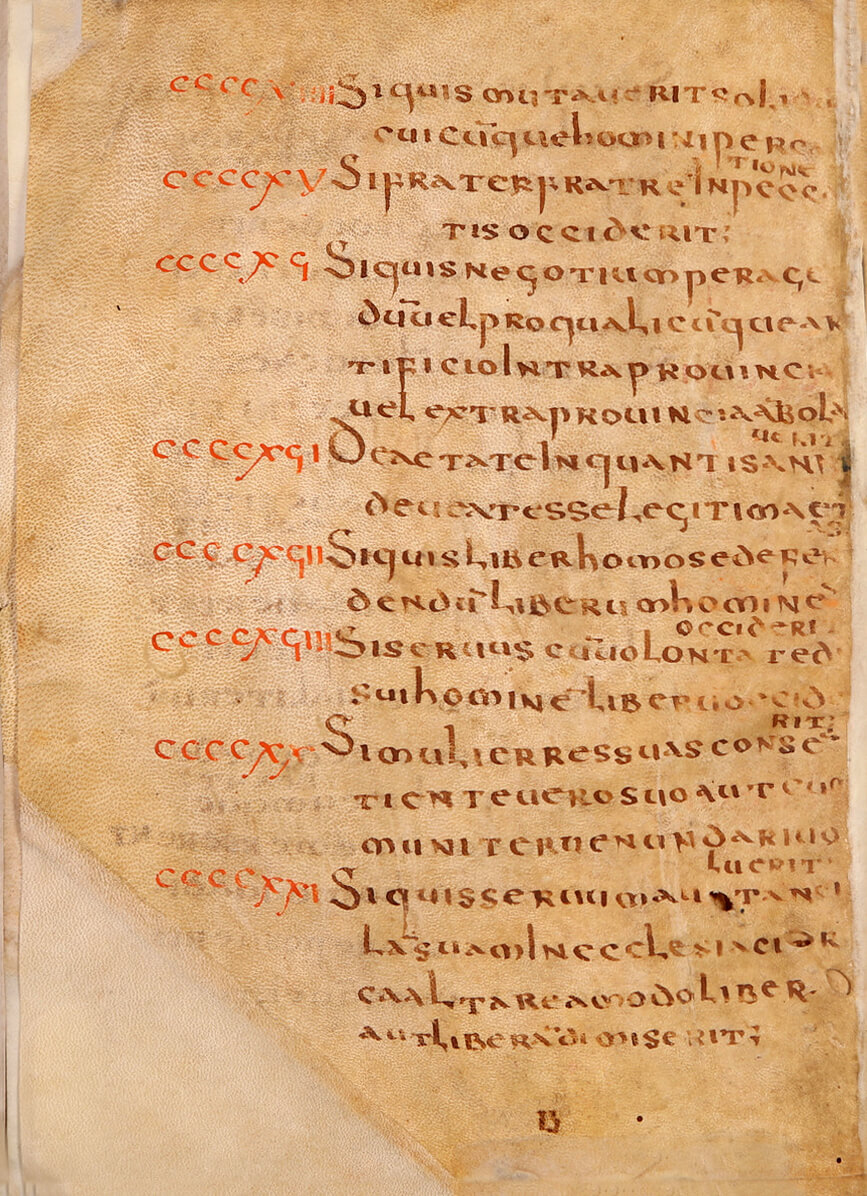 ccccxiiii Si quis mutaverit solidu
cuicūque homini perce
ccccxv Si frater fratrē In pecc
TIONE
tis occiderit;
ccccxϛ Si quis negotium perage
dūuel pro qualicūque ar
tificio Intra prouincia
uel extra prouinciaābola
uerit
ccccxϛi De aetate In quantis anni
deueat esse legitima et
as
ccccxϛii Si quis liber homo se defen
dendū liberum homine
occiderit
ccccxϛiii Si seruus cūuolontatedn
sui hominē liberū occide
rit;
ccccxx Si mulier res suas consen
tiente uero suo aut cum
muniter uenundari uo
luerit
ccccxxi Si quis seruum aut anci
lā suam In ecclesia cir
ca altarea modo liber
aut liberā dimiserit;
B